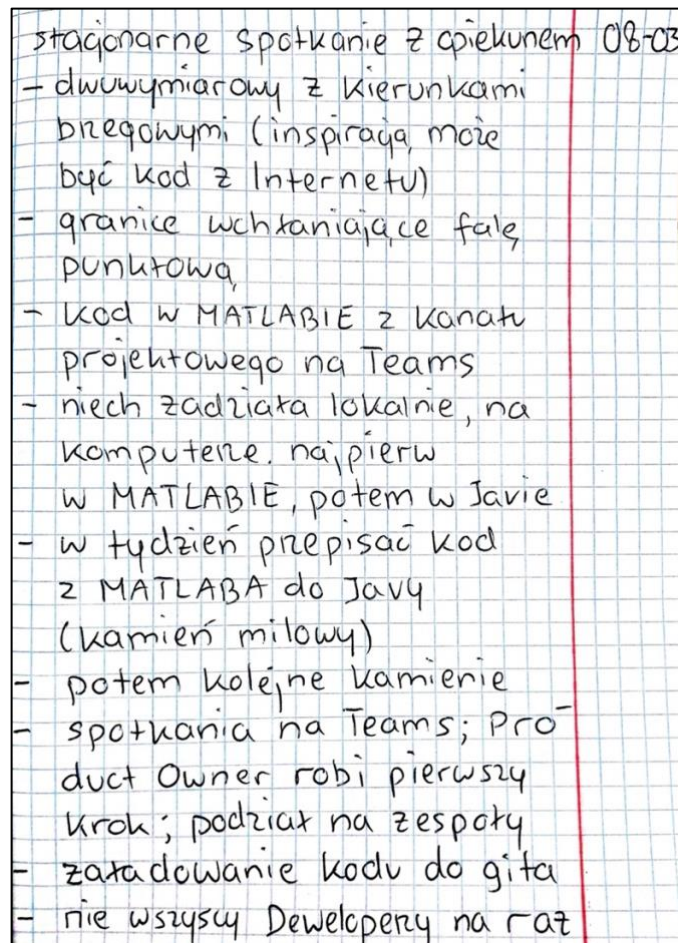 stacjonarne spotkanie z opiekunem 08-03
- dwuwymiarowy z kierunkami
brzegowymi (inspiracją może
być kod z Internetu)
- granice wchłaniające falę
punktową
- kod w MATLABIE z kanału
projektowego na Teams
- niech zadziała lokalnie, na
komputerze. najpierw
w MATLABIE, potem w Javie
- w tydzień przepisać kod
z MATLABA do Javy
(kamień milowy)
- potem kolejne kamienie
- spotkania na Teams; Pro-
duct Owner robi pierwszy
krok; podział na zespoły
- załadowanie kodu do gita
- nie wszyscy Deweloperzy na raz